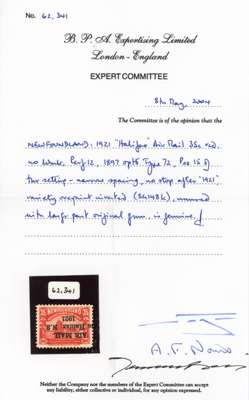 No. 62,341
B. P. A. Expertising Limited
London - England
EXPERT COMMITTEE
8th May 2004
The Committee is of the opinion that the
NEWFOUNDLAND: 1921 "Halifax" Air Mail 35c red,
no wmk, Perf 12, 1897 optd Type 72, Pos. 15 of
the setting - narrow spacing, no stop after "1921",
variety overprint inverted (SG148k), unused
with large part original gum, is genuine.
62,341
NEWFOUNDLAND
AIR MAIL
to Halifax, N.S.
1921
Neither the Company nor the members of the Expert Committee can accept
any liability, either collective or individual, for any opinion expressed.